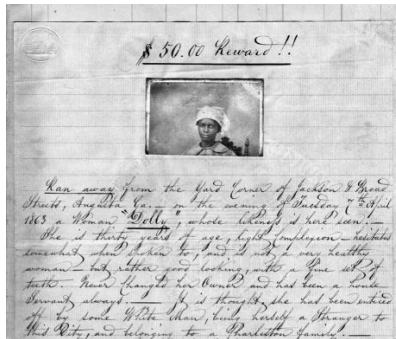 $ 50.00 Reward!!
Ran away from the Yard Corner of Jackson & Broad
Streets, Augusta Ga. — on the evening of Tuesday 7th April
1863 a Woman "Dolly", whose likeness is here seen. —
She is thirty years of age, light complexion — hesitates
somewhat when spoken to, and is not a very healthy
woman — but rather good looking, with a fine set of
teeth. Never changed her Owner and has been a house
Servant always. — It is thought she has been enticed
off by some White Man, being herself a Stranger to
this City, and belonging to a Charleston family. —